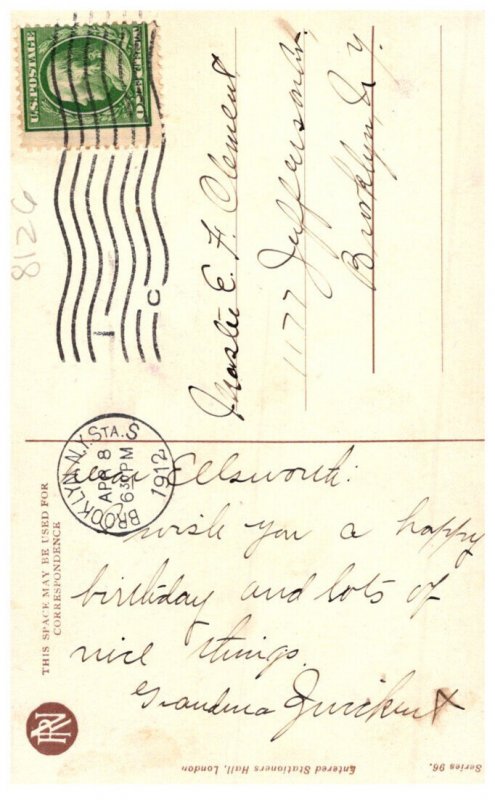 U.S. POSTAGE
8126
C
Master E. F. Clement
1177 Jefferson Av.
Brooklyn N.Y.
BROOKLYN, N.Y. STA. S
APR 8
630 PM
1912
THIS SPACE MAY BE USED FOR
CORRESPONDENCE
Dear Ellsworth:
I wish you a happy
birthday and lots of
nice things.
Grandma
Entered Stationers Hall, London
Series 96.